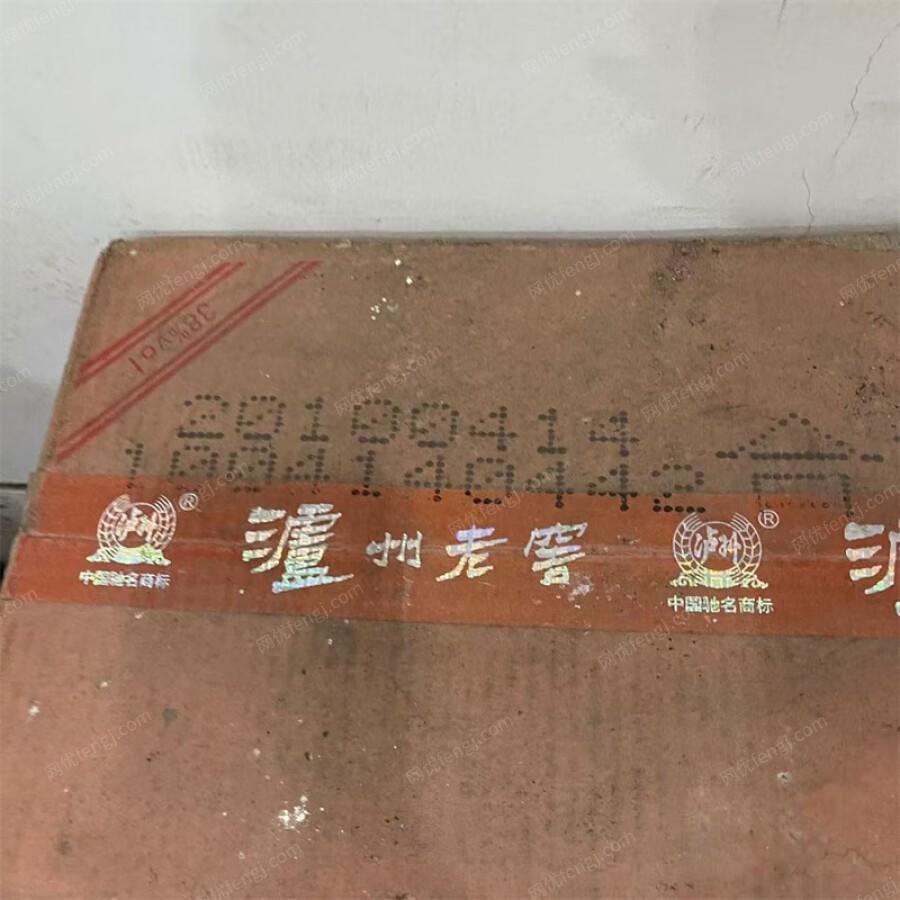 38%vol
20100414
1004140442 合
泸州 ® 泸州老窖 泸州 ® 泸
中国驰名商标 中国驰名商标
网优fengj.com